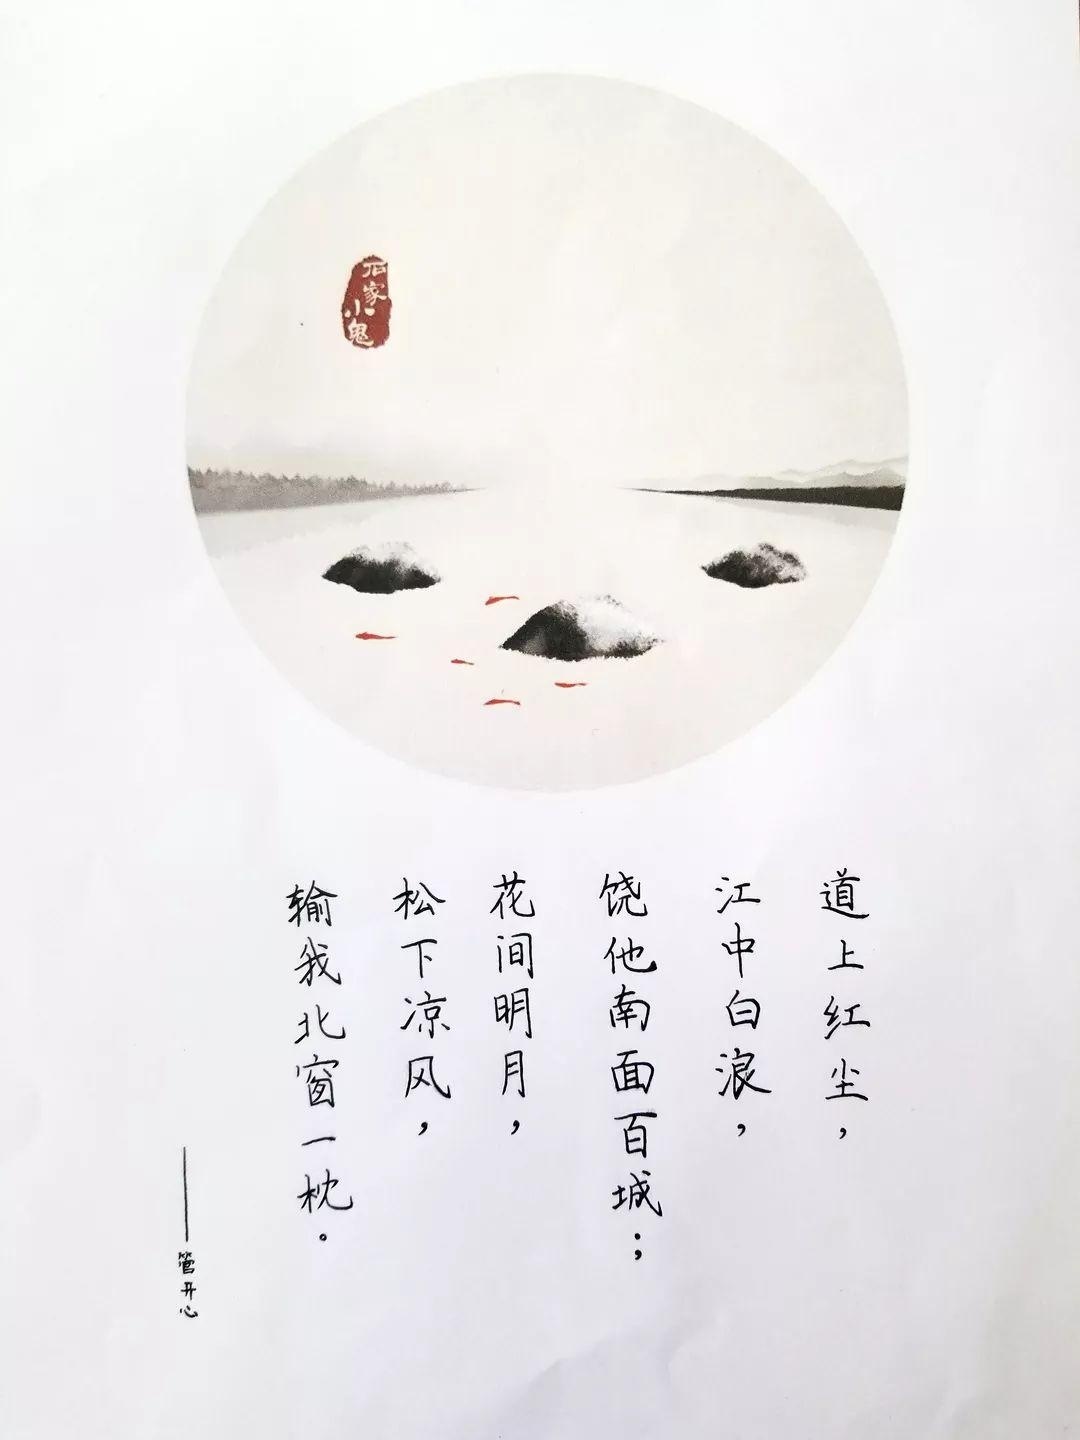 石家
小鬼
道上红尘，
江中白浪，
饶他南面百城；
花间明月，
松下凉风，
输我北窗一枕。
——管开心